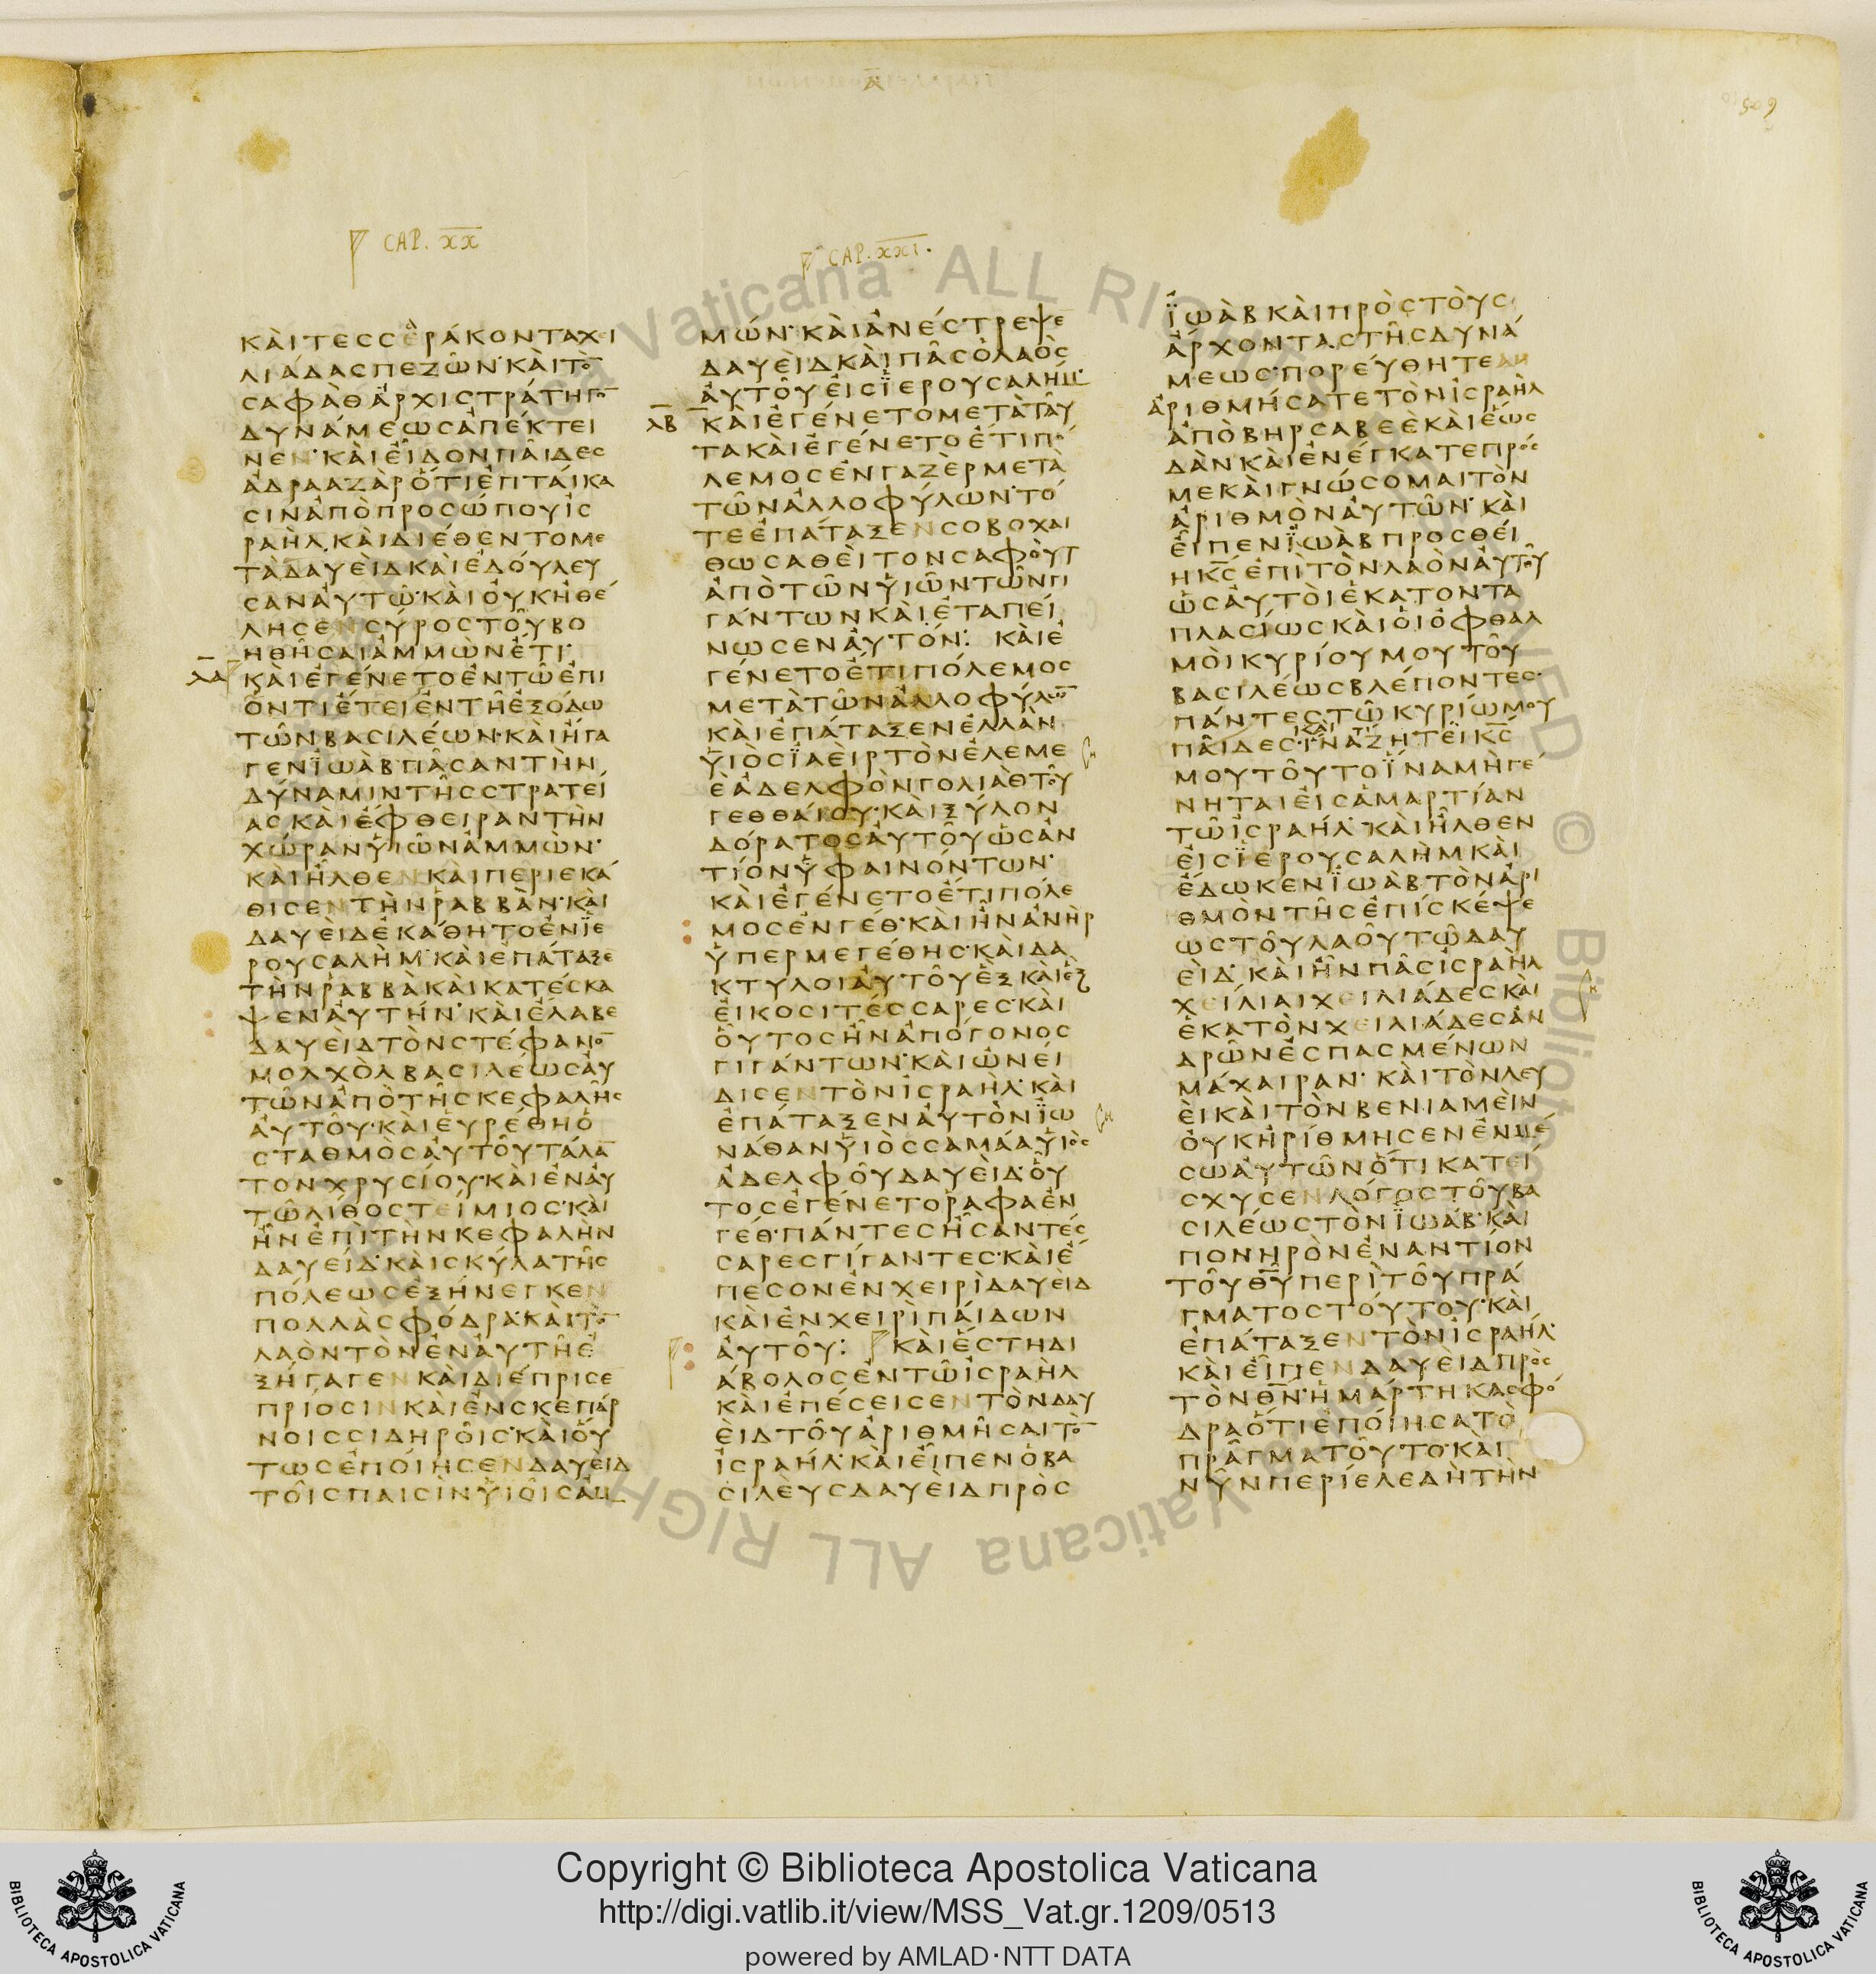 Α
509
CAP. XX
ΚΑΙΤΕΣΣΕΡΑΚΟΝΤΑΧΕΙ
ΛΙΑΔΑΣΠΕΖΩΝ·ΚΑΙΤΟ̅
ΣΑΦΑΘΑΡΧΙΣΤΡΑΤΗΓΟ̅
ΔΥΝΑΜΕΩΣΑΠΕΚΤΕΙ
ΝΕΝ·ΚΑΙΕΙΔΟΝΠΑΙΔΕΣ
ΑΔΡΑΑΖΑΡΟΤΙΕΠΤΑΙΚΑ
ΣΙΝΑΠΟΠΡΟΣΩΠΟΥΙΣ
ΡΑΗΛ·ΚΑΙΔΙΕΘΕΝΤΟΜΕ
ΤΑΔΑΥΕΙΔΚΑΙΕΔΟΥΛΕΥ
ΣΑΝΑΥΤΩ·ΚΑΙΟΥΚΗΘΕ
ΛΗΣΕΝΣΥΡΟΣΤΟΥΒΟ
ΗΘΗΣΑΙΑΜΜΩΝΕΤΙ·
ΛΑ ΚΑΙΕΓΕΝΕΤΟΕΝΤΩΕΠΙ
ΟΝΤΙΕΤΕΙΕΝΤΗΕΞΟΔΩ
ΤΩΝΒΑΣΙΛΕΩΝ·ΚΑΙΗΓΑ
ΓΕΝΪΩΑΒΠΑΣΑΝΤΗΝ
ΔΥΝΑΜΙΝΤΗΣΣΤΡΑΤΕΙ
ΑΣΚΑΙΕΦΘΕΙΡΑΝΤΗΝ
ΧΩΡΑΝΥΙΩΝΑΜΜΩΝ·
ΚΑΙΗΛΘΕΝΚΑΙΠΕΡΙΕΚΑ
ΘΙΣΕΝΤΗΝΡΑΒΒΑΝ·ΚΑΙ
ΔΑΥΕΙΔΕΚΑΘΗΤΟΕΝΪΕ
ΡΟΥΣΑΛΗΜ·ΚΑΙΕΠΑΤΑΞΕ
ΤΗΝΡΑΒΒΑΚΑΙΚΑΤΕΣΚΑ
ΨΕΝΑΥΤΗΝ·ΚΑΙΕΛΑΒΕ
ΔΑΥΕΙΔΤΟΝΣΤΕΦΑΝΟ̅
ΜΟΛΧΟΛΒΑΣΙΛΕΩΣΑΥ
ΤΩΝΑΠΟΤΗΣΚΕΦΑΛΗΣ
ΑΥΤΟΥ·ΚΑΙΕΥΡΕΘΗΟ
ΣΤΑΘΜΟΣΑΥΤΟΥΤΑΛΑ̅
ΤΟΝΧΡΥΣΙΟΥ·ΚΑΙΕΝΑΥ
ΤΩΛΙΘΟΣΤΕΙΜΙΟΣ·ΚΑΙ
ΗΝΕΠΙΤΗΝΚΕΦΑΛΗΝ
ΔΑΥΕΙΔ·ΚΑΙΣΚΥΛΑΤΗΣ
ΠΟΛΕΩΣΕΞΗΝΕΓΚΕΝ
ΠΟΛΛΑΣΦΟΔΡΑ·ΚΑΙΤΟ̅
ΛΑΟΝΤΟΝΕΝΑΥΤΗΕ
ΞΗΓΑΓΕΝΚΑΙΔΙΕΠΡΙΣΕ
ΠΡΙΟΣΙΝΚΑΙΕΝΣΚΕΠΑΡ
ΝΟΙΣΣΙΔΗΡΟΙΣ·ΚΑΙΟΥ
ΤΩΣΕΠΟΙΗΣΕΝΔΑΥΕΙΔ
ΤΟΙΣΠΑΙΣΙΝΥΙΟΙΣΑΜ
CAP. XXI.
ΜΩΝ·ΚΑΙΑΝΕΣΤΡΕΨΕ
ΔΑΥΕΙΔΚΑΙΠΑΣΟΛΑΟΣ
ΑΥΤΟΥΕΙΣΪΕΡΟΥΣΑΛΗΜ·
ΛΒ ΚΑΙΕΓΕΝΕΤΟΜΕΤΑΤΑΥ
ΤΑΚΑΙΕΓΕΝΕΤΟΕΤΙΠΟ
ΛΕΜΟΣΕΝΓΑΖΕΡΜΕΤΑ
ΤΩΝΑΛΛΟΦΥΛΩΝ·ΤΟ
ΤΕΕΠΑΤΑΞΕΝΣΟΒΟΧΑΙ
ΘΩΣΑΘΕΙΤΟΝΣΑΦΟΥΤ
ΑΠΟΤΩΝΥΙΩΝΤΩΝΓΙ
ΓΑΝΤΩΝΚΑΙΕΤΑΠΕΙ
ΝΩΣΕΝΑΥΤΟΝ: ΚΑΙΕ
ΓΕΝΕΤΟΕΤΙΠΟΛΕΜΟΣ
ΜΕΤΑΤΩΝΑΛΛΟΦΥΛΩ̅
ΚΑΙΕΠΑΤΑΞΕΝΕΛΛΑΝ
ΥΙΟΣΪΑΕΙΡΤΟΝΕΛΕΜΕ
ΕΑΔΕΛΦΟΝΓΟΛΙΑΘΤΟΥ
ΓΕΘΘΑΙΟΥ·ΚΑΙΞΥΛΟΝ
ΔΟΡΑΤΟΣΑΥΤΟΥΩΣΑΝ
ΤΙΟΝΥΦΑΙΝΟΝΤΩΝ·
ΚΑΙΕΓΕΝΕΤΟΕΤΙΠΟΛΕ
ΜΟΣΕΝΓΕΘ·ΚΑΙΗΝΑΝΗΡ
ΥΠΕΡΜΕΓΕΘΗΣ·ΚΑΙΔΑ
ΚΤΥΛΟΙΑΥΤΟΥΕΞΚΑΙΕΞ
ΕΙΚΟΣΙΤΕΣΣΑΡΕΣ·ΚΑΙ
ΟΥΤΟΣΗΝΑΠΟΓΟΝΟΣ
ΓΙΓΑΝΤΩΝ·ΚΑΙΩΝΕΙ
ΔΙΣΕΝΤΟΝΙΣΡΑΗΛ·ΚΑΙ
ΕΠΑΤΑΞΕΝΑΥΤΟΝΪΩ
ΝΑΘΑΝΥΙΟΣΣΑΜΑΑΥΙΟΣ
ΑΔΕΛΦΟΥΔΑΥΕΙΔ·ΟΥ
ΤΟΣΕΓΕΝΕΤΟΡΑΦΑΕΝ
ΓΕΘ·ΠΑΝΤΕΣΗΣΑΝΤΕΣ
ΣΑΡΕΣΓΙΓΑΝΤΕΣ·ΚΑΙΕ
ΠΕΣΟΝΕΝΧΕΙΡΙΔΑΥΕΙΔ
ΚΑΙΕΝΧΕΙΡΙΠΑΙΔΩΝ
ΑΥΤΟΥ: ΚΑΙΕΣΤΗΔΙ
ΑΒΟΛΟΣΕΝΤΩΙΣΡΑΗΛ
ΚΑΙΕΠΕΣΕΙΣΕΝΤΟΝΔΑΥ
ΕΙΔΤΟΥΑΡΙΘΜΗΣΑΙΤΟ̅
ΙΣΡΑΗΛ·ΚΑΙΕΙΠΕΝΟΒΑ
ΣΙΛΕΥΣΔΑΥΕΙΔΠΡΟΣ
ΪΩΑΒΚΑΙΠΡΟΣΤΟΥΣ
ΑΡΧΟΝΤΑΣΤΗΣΔΥΝΑ
ΜΕΩΣ·ΠΟΡΕΥΘΗΤΕ
ΑΡΙΘΜΗΣΑΤΕΤΟΝΙΣΡΑΗΛ
ΑΠΟΒΗΡΣΑΒΕΕΚΑΙΕΩΣ
ΔΑΝΚΑΙΕΝΕΓΚΑΤΕΠΡΟΣ
ΜΕΚΑΙΓΝΩΣΟΜΑΙΤΟΝ
ΑΡΙΘΜΟΝΑΥΤΩΝ·ΚΑΙ
ΕΙΠΕΝΪΩΑΒΠΡΟΣΘΕΙ
ΗΚ̅Σ̅ΕΠΙΤΟΝΛΑΟΝΑΥΤΟΥ
ΩΣΑΥΤΟΙΕΚΑΤΟΝΤΑ
ΠΛΑΣΙΩΣΚΑΙΟΙΟΦΘΑΛ
ΜΟΙΚΥΡΙΟΥΜΟΥΤΟΥ
ΒΑΣΙΛΕΩΣΒΛΕΠΟΝΤΕΣ·
ΠΑΝΤΕΣΤΩΚΥΡΙΩΜΟΥ
ΠΑΙΔΕΣ·ΙΝΑΖΗΤΕΙΚ̅Σ̅
ΜΟΥΤΟΥΤΟΪΝΑΜΗΓΕ
ΝΗΤΑΙΕΙΣΑΜΑΡΤΙΑΝ
ΤΩΙΣΡΑΗΛ·ΚΑΙΗΛΘΕΝ
ΕΙΣΪΕΡΟΥΣΑΛΗΜΚΑΙ
ΕΔΩΚΕΝΪΩΑΒΤΟΝΑΡΙ
ΘΜΟΝΤΗΣΕΠΙΣΚΕΨΕ
ΩΣΤΟΥΛΑΟΥΤΩΔΑΥ
ΕΙΔ·ΚΑΙΗΝΠΑΣΙΣΡΑΗΛ
ΧΕΙΛΙΑΙΧΕΙΛΙΑΔΕΣΚΑΙ
ΕΚΑΤΟΝΧΕΙΛΙΑΔΕΣΑΝ
ΔΡΩΝΕΣΠΑΣΜΕΝΩΝ
ΜΑΧΑΙΡΑΝ·ΚΑΙΤΟΝΛΕΥ
ΕΙΚΑΙΤΟΝΒΕΝΙΑΜΕΙΝ
ΟΥΚΗΡΙΘΜΗΣΕΝΕΝΜΕ
ΣΩΑΥΤΩΝΟΤΙΚΑΤΕΙ
ΣΧΥΣΕΝΛΟΓΟΣΤΟΥΒΑ
ΣΙΛΕΩΣΤΟΝΪΩΑΒ·ΚΑΙ
ΠΟΝΗΡΟΝΕΝΑΝΤΙΟΝ
ΤΟΥΘ̅Υ̅ΠΕΡΙΤΟΥΠΡΑ
ΓΜΑΤΟΣΤΟΥΤΟΥ·ΚΑΙ
ΕΠΑΤΑΞΕΝΤΟΝΙΣΡΑΗΛ·
ΚΑΙΕΙΠΕΝΔΑΥΕΙΔΠΡΟΣ
ΤΟΝΘ̅Ν̅·ΗΜΑΡΤΗΚΑΣΦΟ
ΔΡΑΟΤΙΕΠΟΙΗΣΑΤΟ
ΠΡΑΓΜΑΤΟΥΤΟ·ΚΑΙ
ΝΥΝΠΕΡΙΕΛΕΔΗΤΗΝ
Vaticana ALL RIGHTS RESERVED © Biblioteca Apostolica Vaticana ALL RIGHTS
Copyright © Biblioteca Apostolica Vaticana
http://digi.vatlib.it/view/MSS_Vat.gr.1209/0513
powered by AMLAD·NTT DATA
BIBLIOTECA APOSTOLICA VATICANA
BIBLIOTECA APOSTOLICA VATICANA